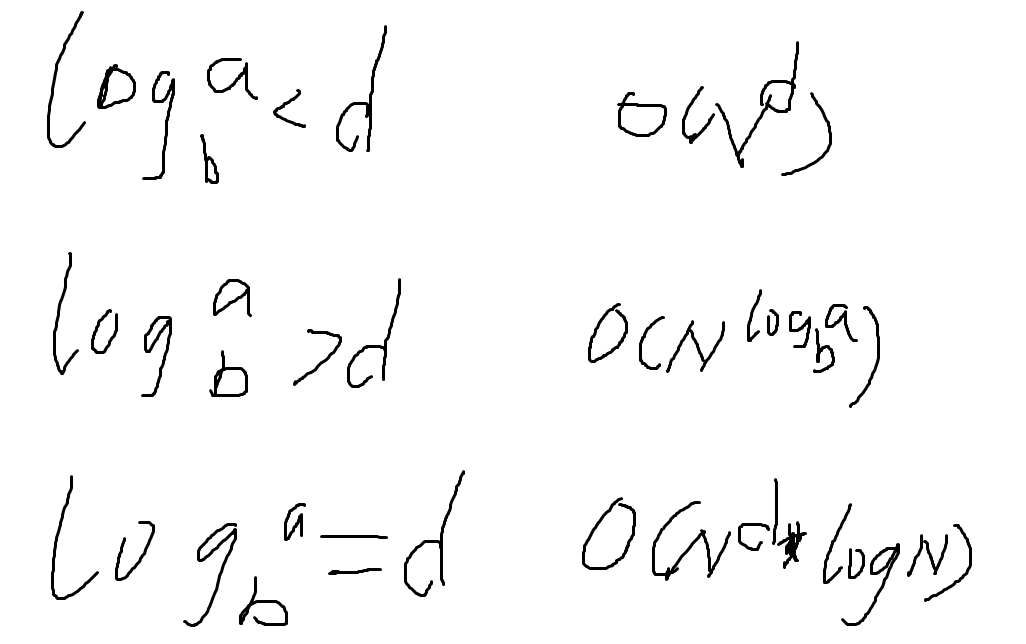 log_b^a < d O(N^d)
log_b^a > d O(N^(log_b^a))
log_b^a = d O(N^d * logN)